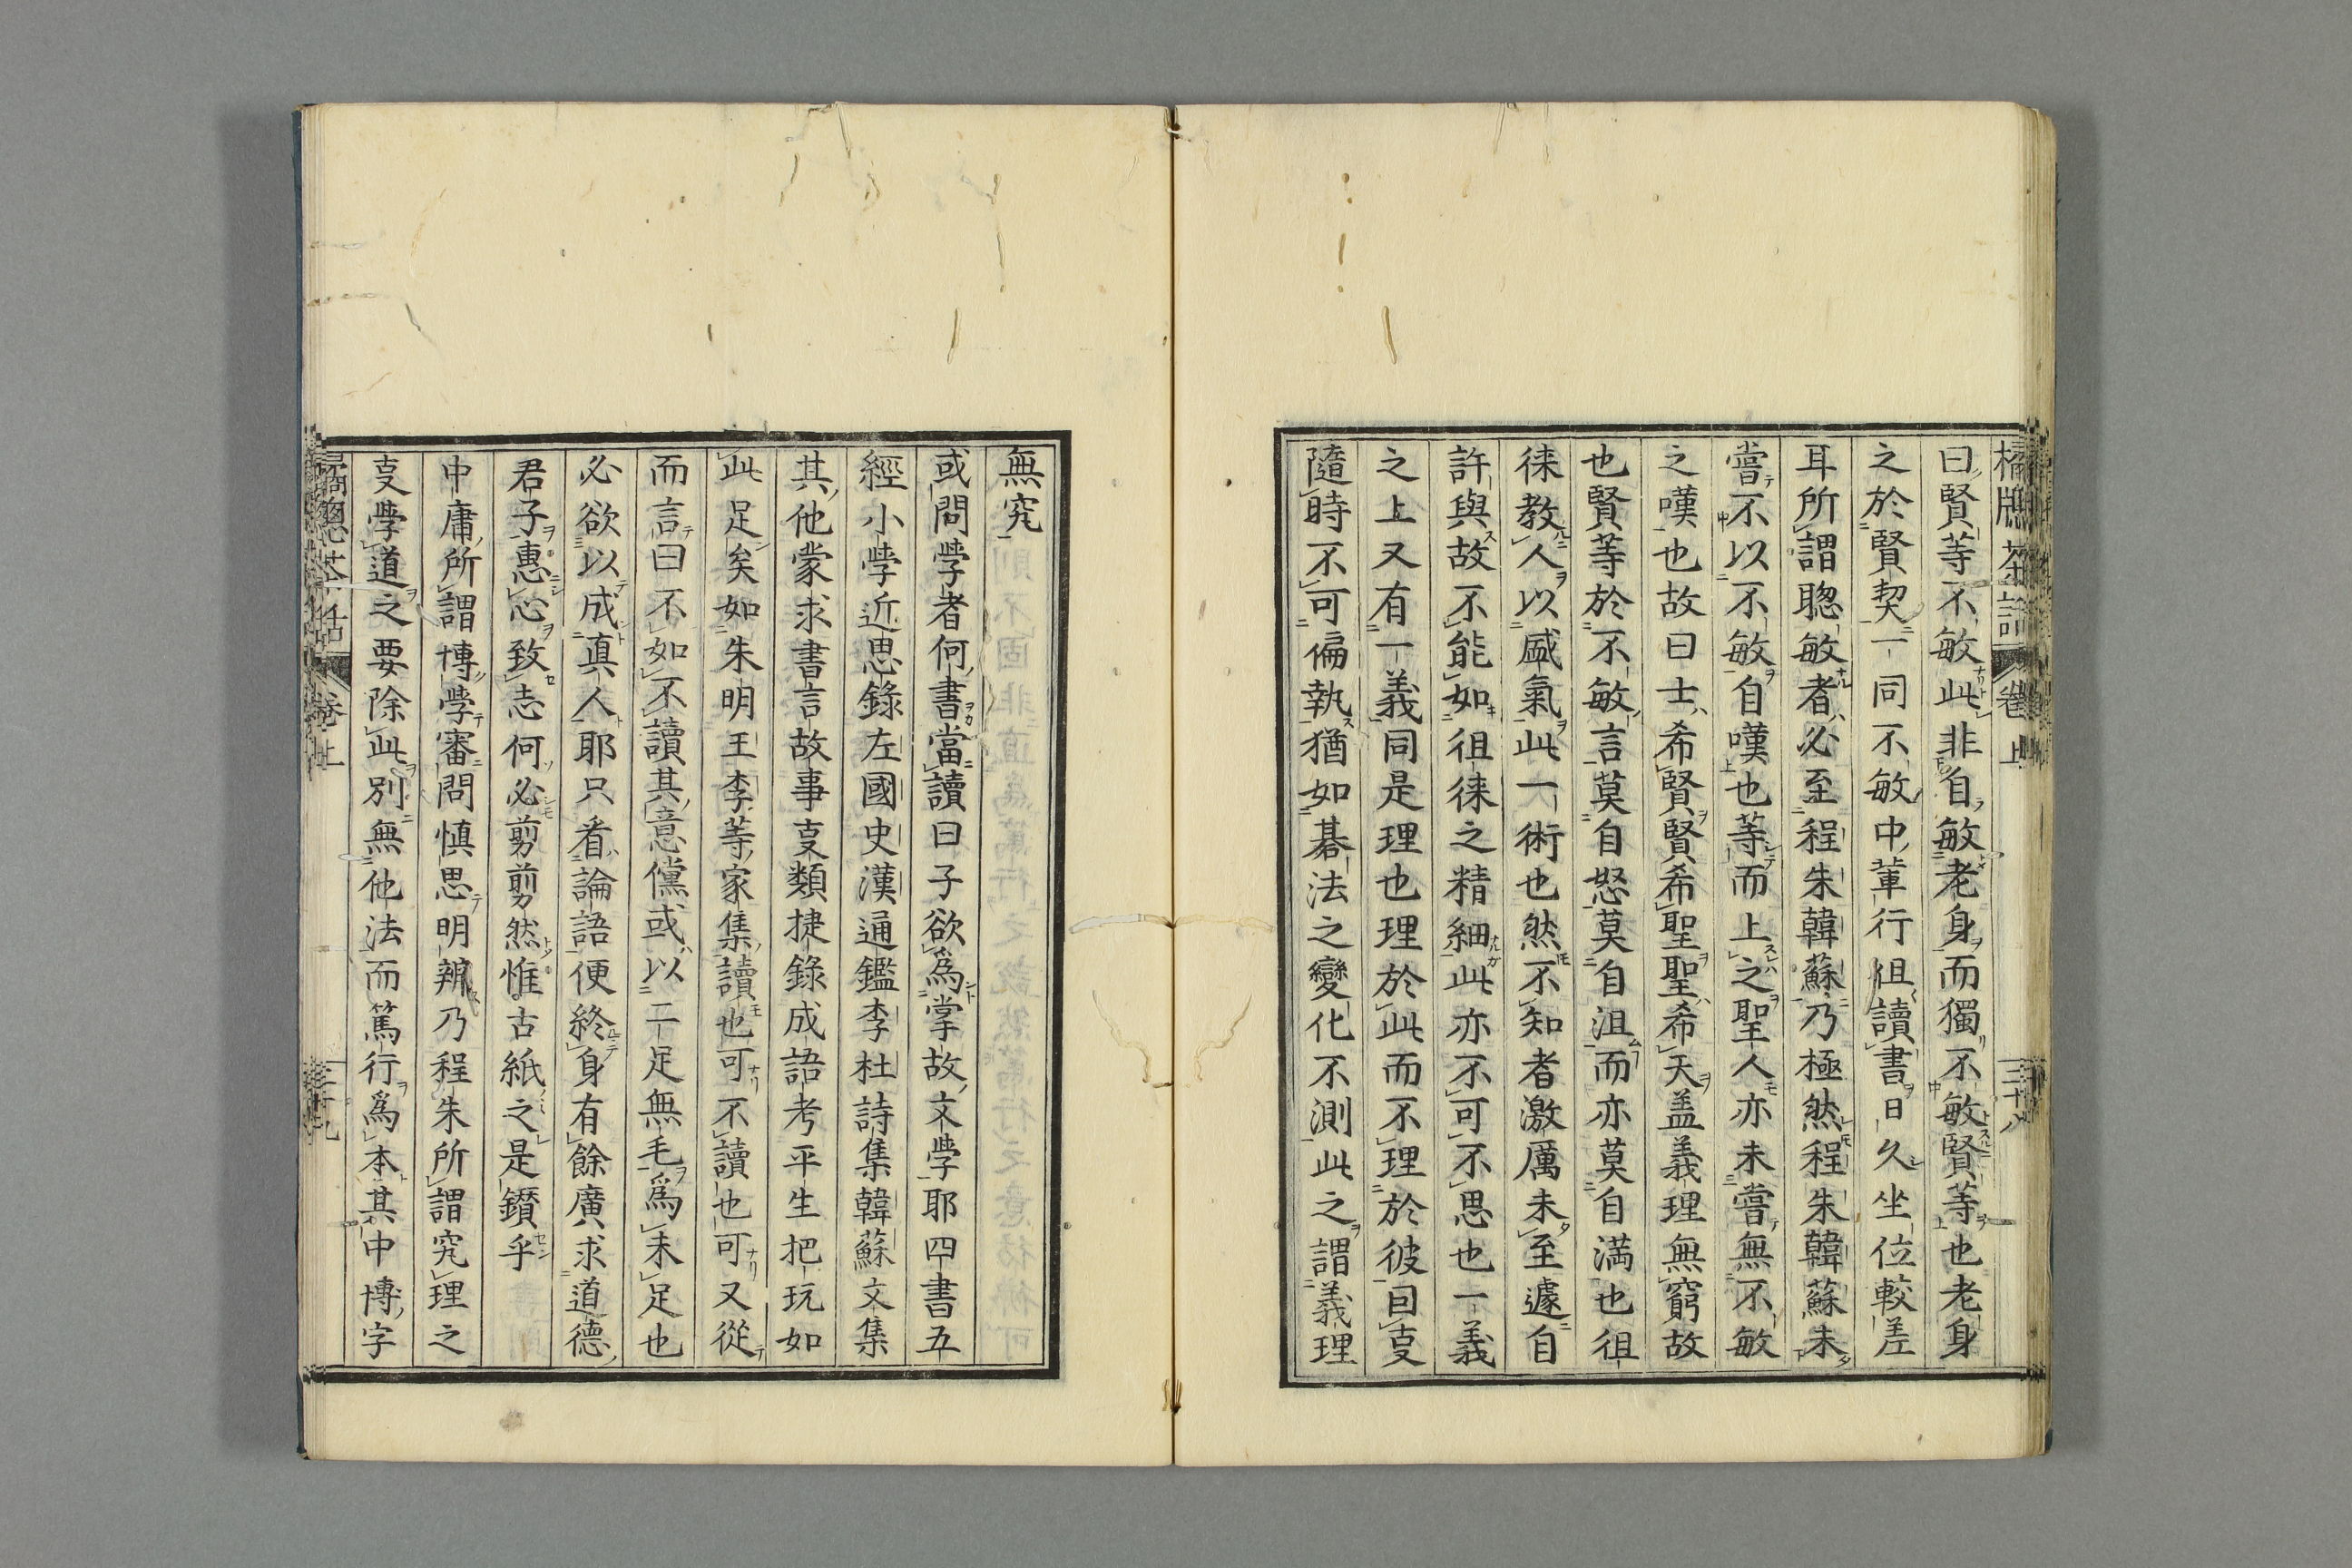 茶話 卷上 三十八
曰賢等不敏此非自敏老身而獨不敏賢等也老身
之於賢契一同不敏中輩行徂讀書日久坐位較差
耳所謂聰敏者必至程朱韓蘇乃極然程朱韓蘇未
嘗不以不敏自嘆也等而上之聖人亦未嘗無不敏
之嘆也故曰士希賢賢希聖聖希天盖義理無窮故
也賢等於不敏言莫自怒莫自沮而亦莫自満也徂
徠教人以盛氣此一術也然不知者激厲未至遽自
許與故不能如徂徠之精細此亦不可不思也一義
之上又有一義同是理也理於此而不理於彼囙叓
隨時不可偏執猶如碁法之變化不測此之謂義理
無究
或問學者何書當讀曰子欲爲掌故文學耶四書五
經小學近思錄左國史漢通鑑李杜詩集韓蘇文集
其他蒙求書言故事叓類捷錄成語考平生把玩如
此足矣如朱明王李等家集讀也可不讀也可又從
而言曰不如不讀其意儻或以二足無毛爲未足也
必欲以成真人耶只看論語便終身有餘廣求道德
君子惠心致志何必剪剪然惟古紙之是鑽乎
中庸所謂博學審問慎思明辨乃程朱所謂究理之
叓學道之要除此別無他法而篤行爲本其中博字
卷上